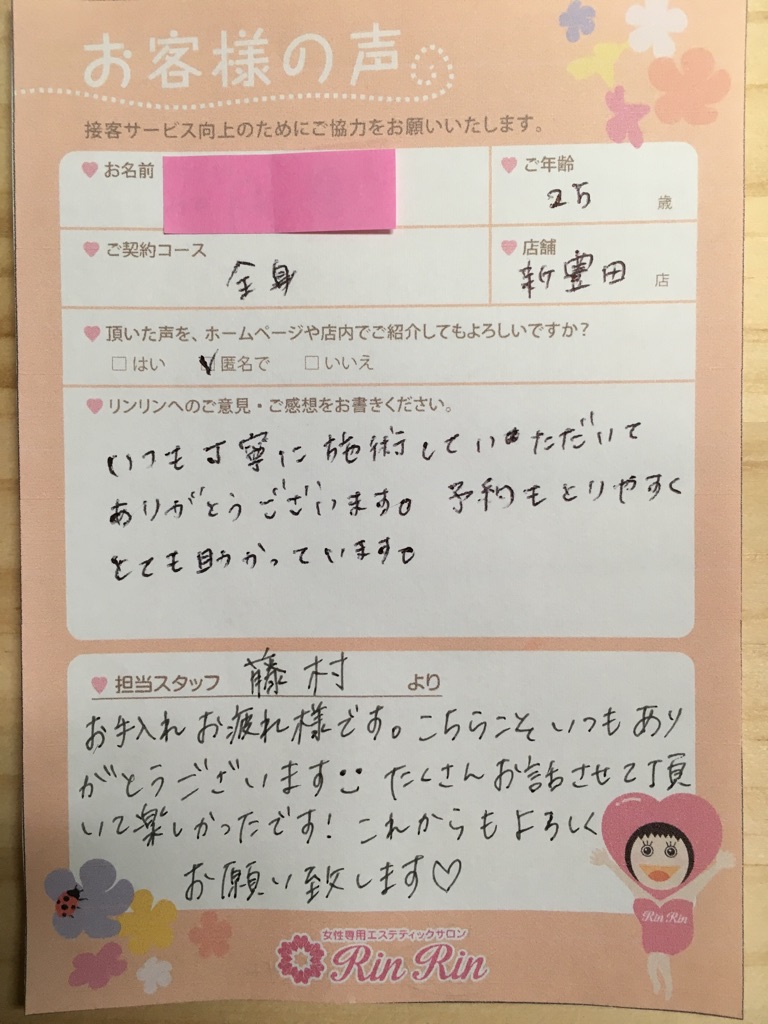 お客様の声
接客サービス向上のためにご協力をお願いいたします。
お名前
ご年齢
25 歳
ご契約コース
全身
店舗
新豊田 店
頂いた声を、ホームページや店内でご紹介してもよろしいですか？
□はい ☑匿名で □いいえ
リンリンへのご意見・ご感想をお書きください。
いつも丁寧に施術していただいて
ありがとうございます。予約もとりやすく
とても助かっています。
担当スタッフ 藤村 より
お手入れお疲れ様です。こちらこそいつもあり
がとうございます たくさんお話させて頂
いて楽しかったです！これからもよろしく
お願い致します♡
Rin Rin
女性専用エステティックサロン
Rin Rin